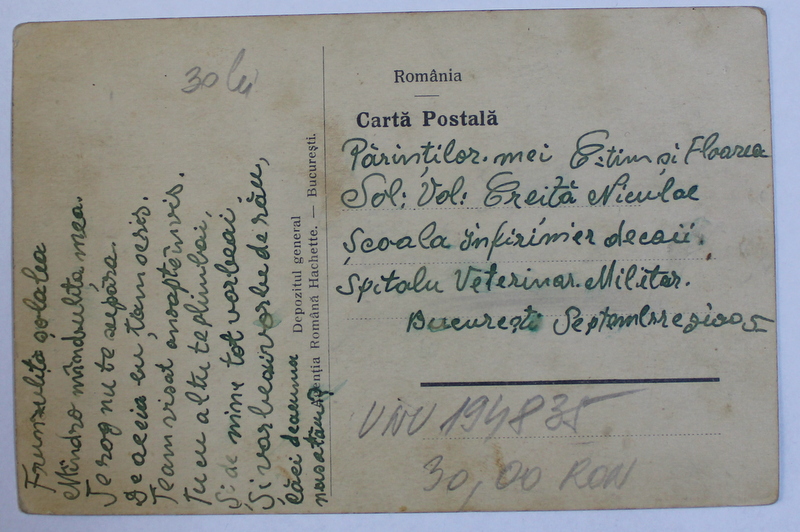 30 lei
Frunzulița solalea
Mîndro mîndrulita mea.
Te rog nu te supăra.
De aceia eu, țam scris.
Team visat anoapte în vis.
Tu cu altu te plimbai,
Și de mine tot vorbeai.
Și vorbeai vorbe de rău,
Căci deacuma
nausatămă
Depozitul general
Agenția Română Hachette. — București.
România
Cartă Postală
Părinților. mei Eftim și Floarea
Sol: Vol: Creiță Niculae
Școala infirimier decaii.
Spitalu Veterinar. Militar.
București Septembrie
UNU 194835
30,00 RON